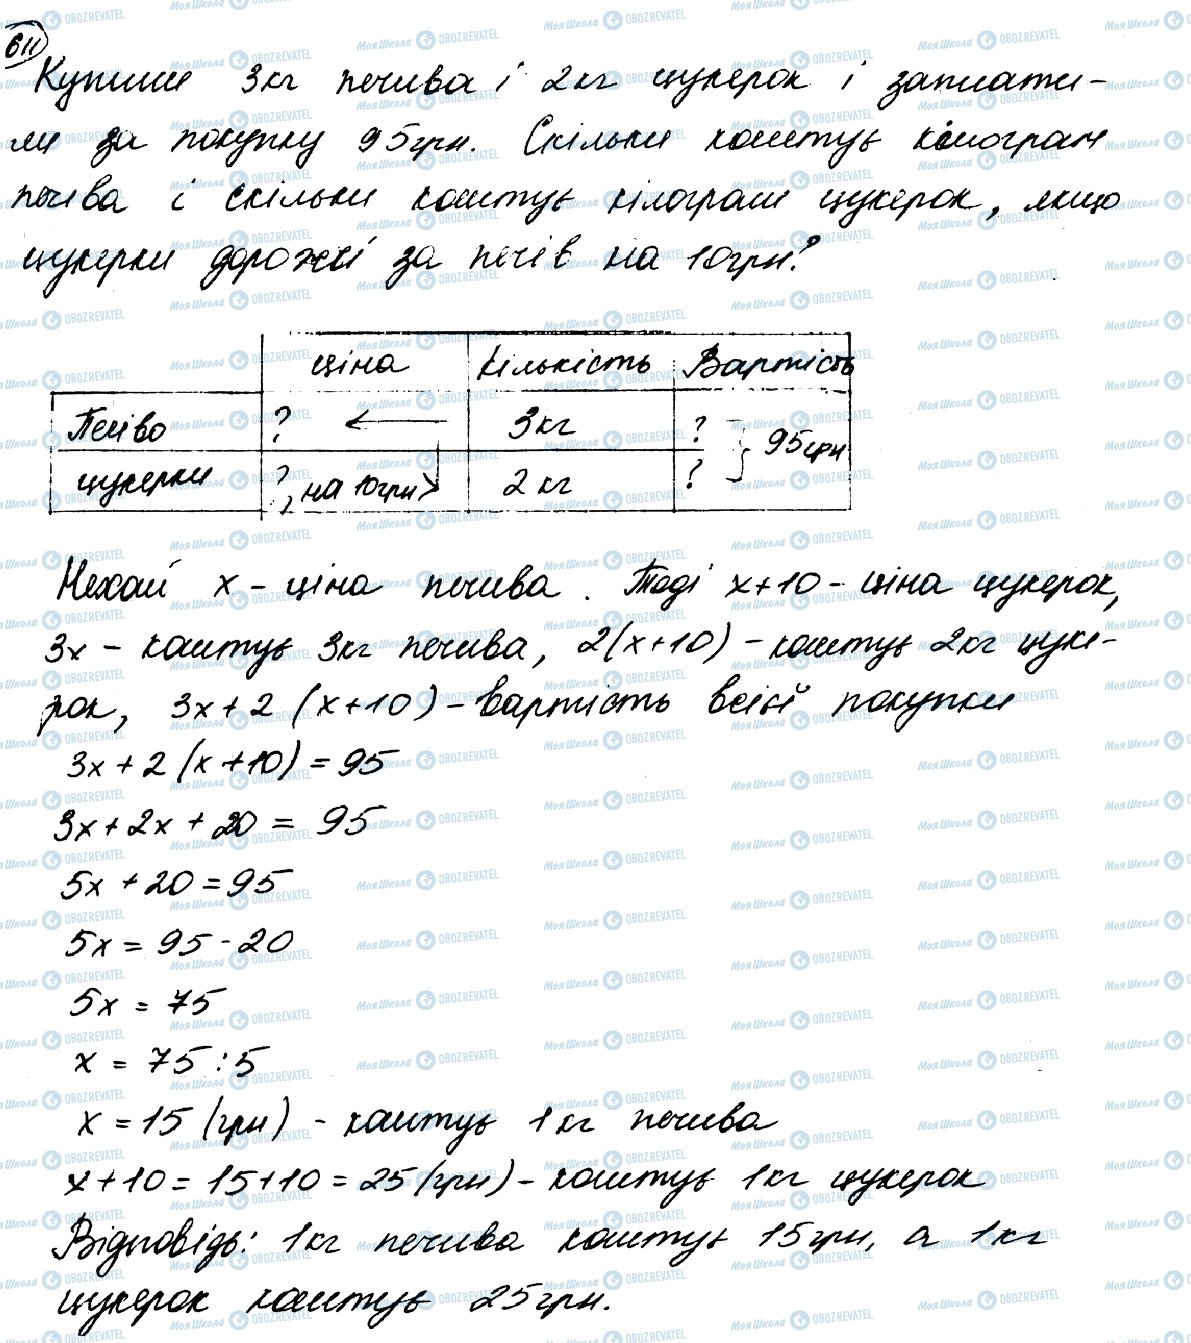 611
Купили 3кг печива і 2кг цукерок і заплати-
ли за покупку 95грн. Скільки коштує кілограм
печива і скільки коштує кілограм цукерок, якщо
цукерки дорожчі за печиво на 10грн?
ціна Кількість Вартість
Печиво ? 3кг ? 95грн
цукерки ?, на 10грн> 2 кг ?
Нехай x - ціна печива. Тоді x+10 - ціна цукерок,
3x - коштує 3кг печива, 2(x+10) - коштує 2кг цуке-
рок, 3x+2(x+10) - вартість всієї покупки
3x+2(x+10)=95
3x+2x+20=95
5x+20=95
5x=95-20
5x=75
x=75:5
x=15(грн) - коштує 1кг печива
x+10=15+10=25(грн) - коштує 1кг цукерок
Відповідь: 1кг печива коштує 15грн, а 1кг
цукерок коштує 25грн.
МояШкола OBOZREVATEL